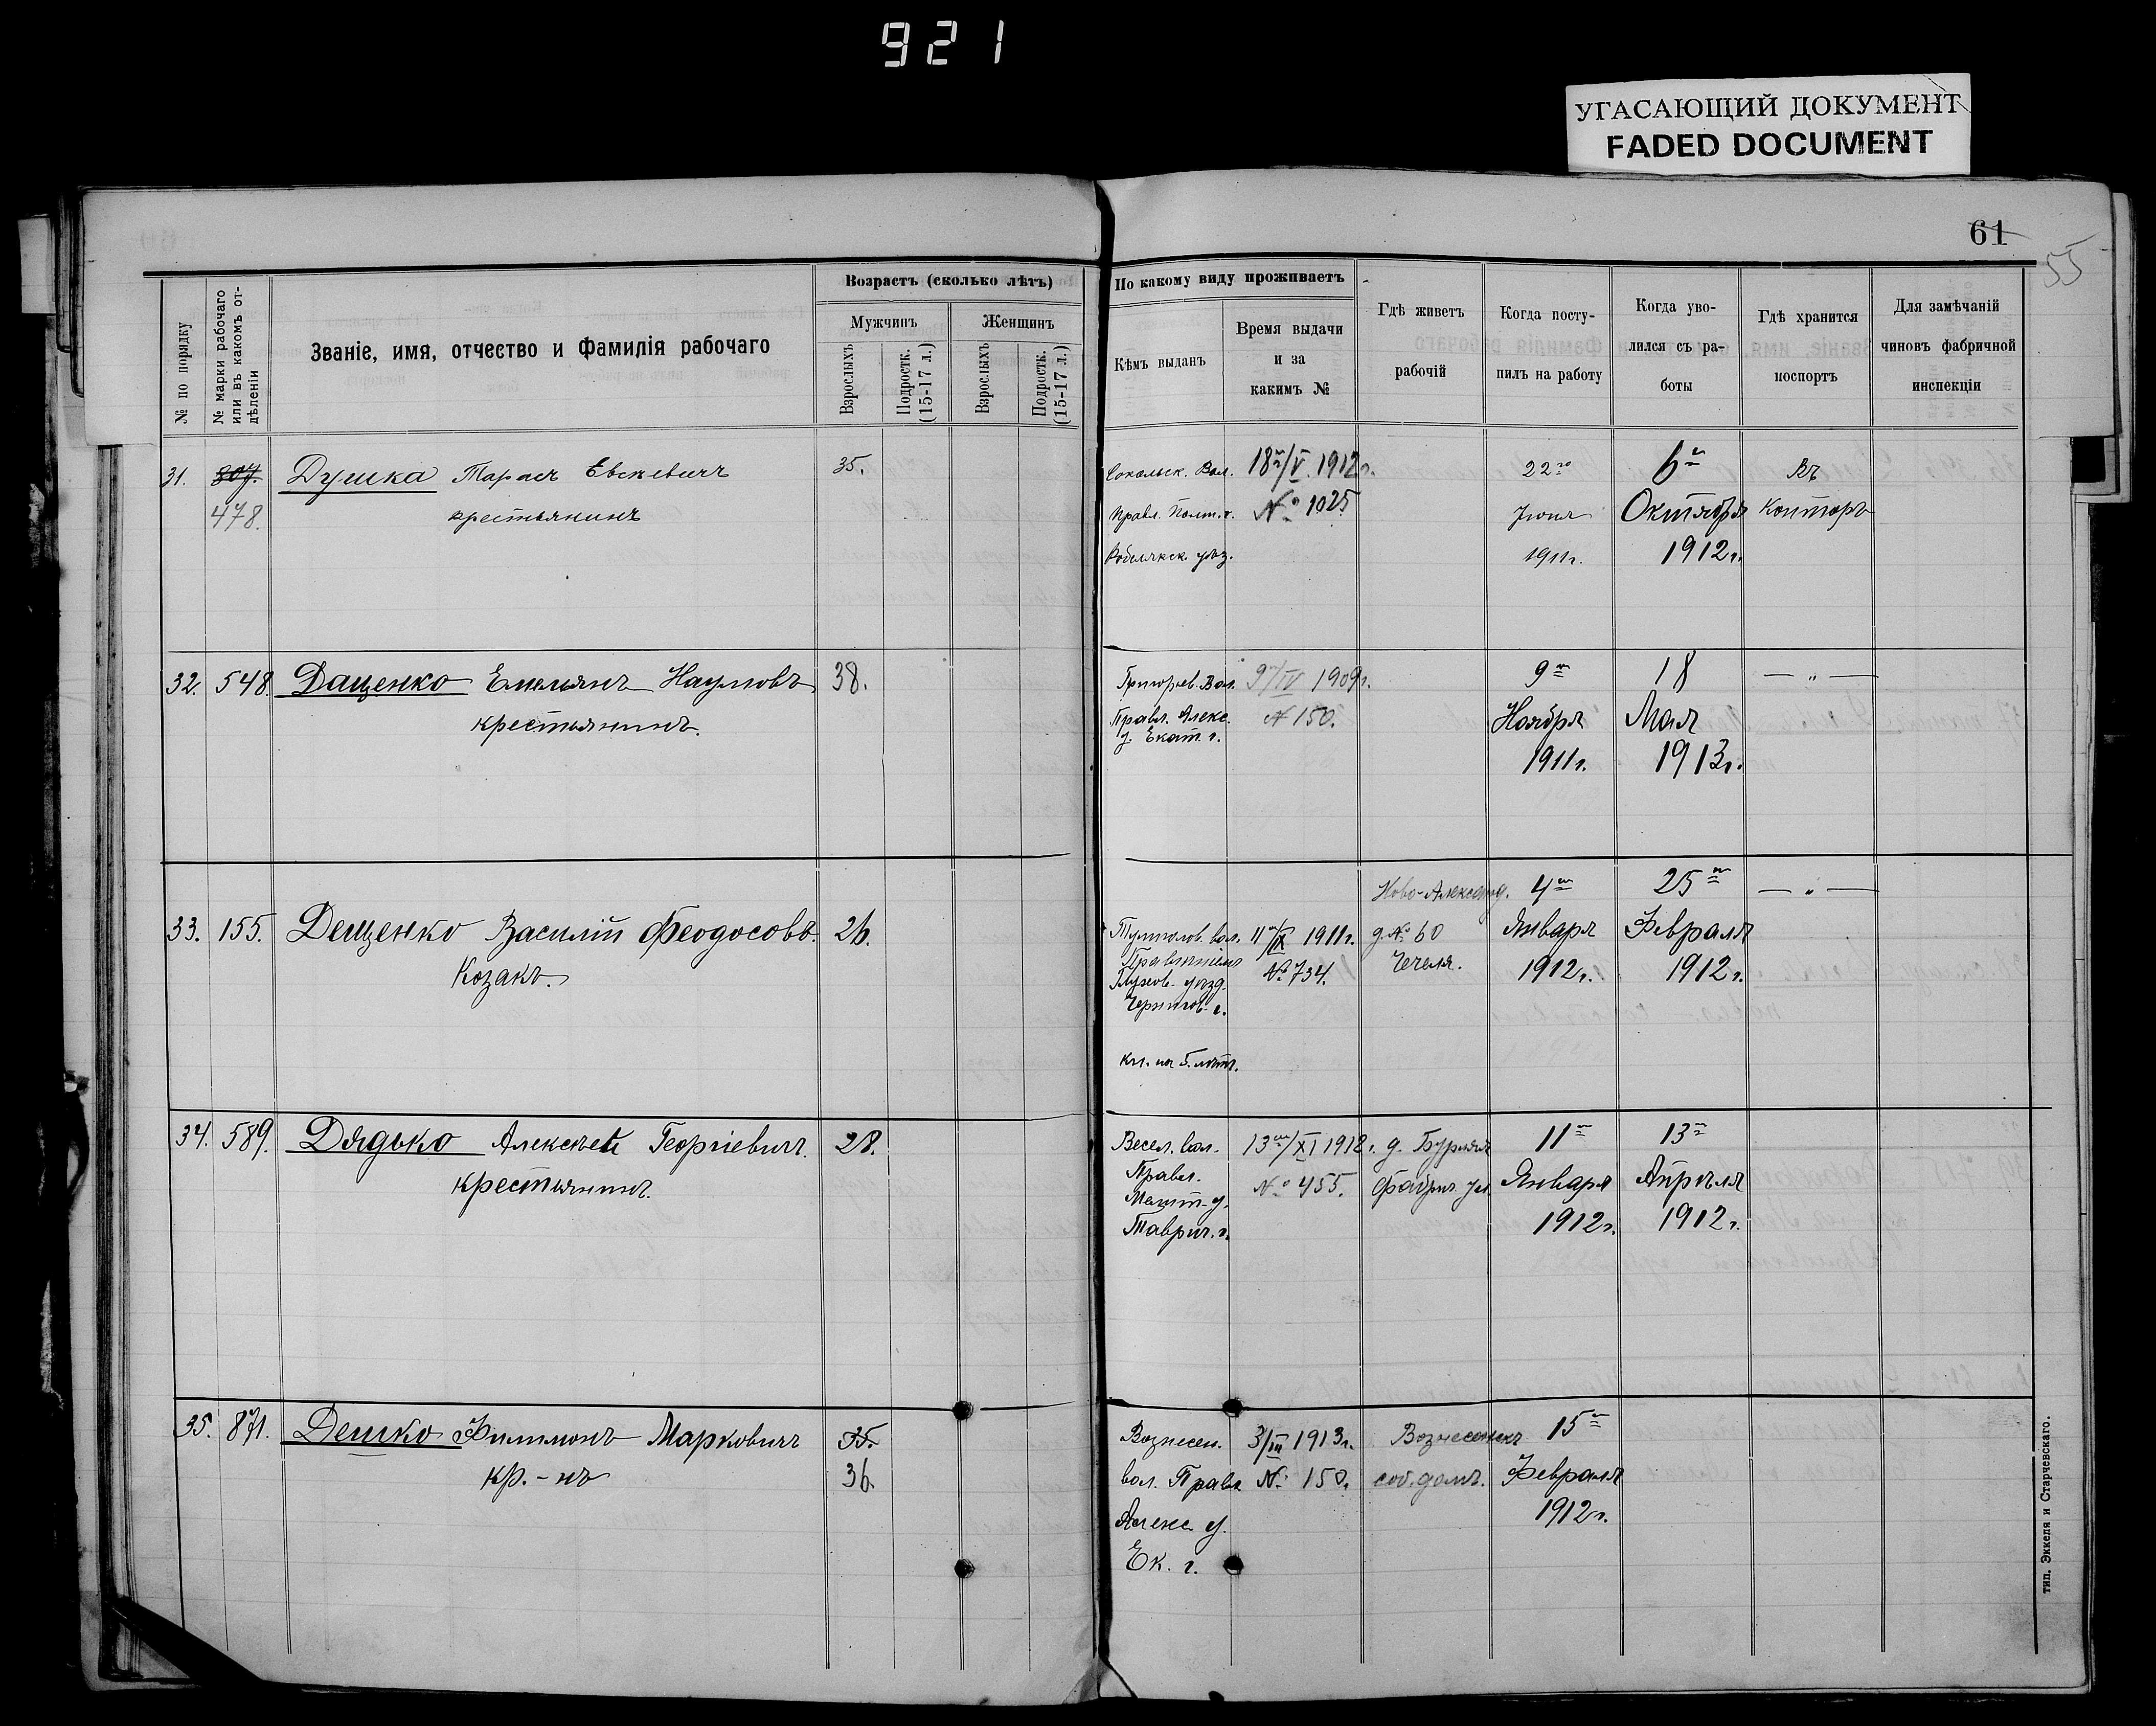 921
УГАСАЮЩИЙ ДОКУМЕНТ
FADED DOCUMENT
61
55
№ по порядку
№ марки рабочаго или въ какомъ отдѣленіи
Званіе, имя, отчество и фамилія рабочаго
Возрастъ (сколько лѣтъ)
Мужчинъ
Женщинъ
Взрослыхъ
Подростк. (15-17 л.)
Взрослыхъ
Подростк. (15-17 л.)
По какому виду проживаетъ
Кѣмъ выданъ
Время выдачи и за какимъ №
Гдѣ живетъ рабочій
Когда поступилъ на работу
Когда уволился съ работы
Гдѣ хранится поспортъ
Для замѣчаній чиновъ фабричной инспекціи
31. 807. Душка Тарасъ 35. Сокольск. Вол. 18го/V. 1912г. 22го 6го Въ
478. крестьянинъ Правл. Полт. г. № 1025 Іюня Октября Конторѣ
Кобелякск. уѣз. 1911г. 1912г.
32. 548. Даценко Емельянъ Наумовъ 38. Григорьев. Вол. 9го/IV 1909г. 9го 18 — „ —
крестьянинъ. Правл. Алекс. № 150. Ноября Мая
у. Екат. г. 1911г. 1913г.
Ново-Александ. 4го 25го — „ —
33. 155. Дещенко Василій Феодосовъ. 26. вол. 11го/IX 1911г. д. № 60 Января Февраля
Козакъ. Правленіемъ № 734. 1912г. 1912г.
Глухов. уѣзд.
Чернигов. г.
кн. на 5. лѣтъ.
34. 589. Дядько Алексѣй Георгіевичъ. 28. Весел. вол. 13го/XI 1912г. д. 11го 13го
крестьянинъ. Правл. № 455. Фабрич. ул. Января Апрѣля
Мелит. у. 1912г. 1912г.
Таврич. г.
35. 871. Дешко Филимонъ Марковичъ 35. Вознесен. 3/III 1913г. Вознесенскъ 15го
кр.-нъ 36. вол. Правл. № 150. соб. домъ. Февраля
Алекс у. 1912г.
Ек. г.
тип. Эккеля и Старчевскаго.